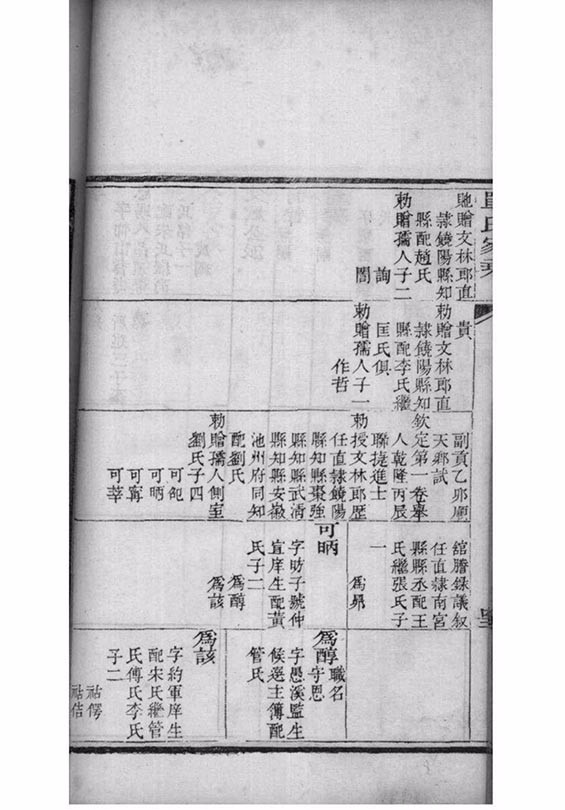 氏家乘
貤贈文林郎直
隸饒陽縣知
縣配趙氏
勅贈孺人子二
詢
誾
貴
勅贈文林郎直
隸饒陽縣知
縣配李氏繼
匡氏俱
勅贈孺人子一
作哲
副貢乙卯順
天鄉試
欽定第一卷舉
人乾隆丙辰
聯捷進士
勅授文林郎歷
任直隸饒陽
縣知縣棗強
縣知縣武清
縣知縣安徽
池州府同知
配劉氏
勅贈孺人側室
劉氏子四
可
可昞
可寗
可莘
舘謄錄議叙
任直隸南宮
縣縣丞配王
氏繼張氏子
一
爲
可昞
字昉子號仲
宣庠生配黃
氏子二
爲醇
爲該
爲醇
職名
守恩
字愚溪監生
候選主簿配
管氏
爲該
字約軍庠生
配宋氏繼管
氏傅氏李氏
子二
祜愕
祜佶